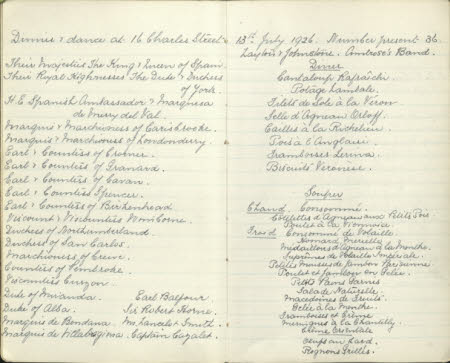 Dinner & dance at 16 Charles Street
Their Majesties The King & Queen of Spain
Their Royal Highnesses The Duke & Duchess
of York.
H.E. Spanish Ambassador & Marquesa
de Merry del Val.
Marquis & Marchioness of Carisbrooke.
Marquis & Marchioness of Londonderry
Earl & Countess of Cromer
Earl & Countess of Granard.
Earl & Countess of Cavan.
Earl & Countess Spencer.
Earl & Countess of Birkenhead
Viscount & Viscountess Wimborne.
Duchess of Northumberland.
Duchess of San Carlos.
Marchioness of Crewe.
Countess of Pembroke.
Viscountess Curzon.
Duke of Miranda. Earl Balfour
Duke of Alba. Sir Robert Horne.
Marquis de Bondana.
Captain
13th July 1926. Number present 36.
Layton & Johnstone. Ambrose's Band.
Diner
Cantaloup Rafraîchi
Potage Lamballe.
Filets de Sole à la Véron
Selle d'Agneau Orloff.
Cailles à la Richelieu
Pois à l'Anglaise
Framboises
Biscuits Véronese.
Souper
Chaud. Consommé.
Côtelettes d'Agneau aux Petits Pois
Poulet à la Viennoise
Froid Consommé de Volaille.
Homard
Médaillons d'Agneau à la Menthe.
Suprêmes de Volaille Impériale.
Petites Mousses de Jambon
Poulet et Jambon en Gelée.
Petits Pains Varnés
Salade Naturelle
Macédoines de Fruits.
Gelée à la Menthe
Framboises et Crème
Meringues à la Chantilly
Oeufs au Lard.
Rognons Grillés.